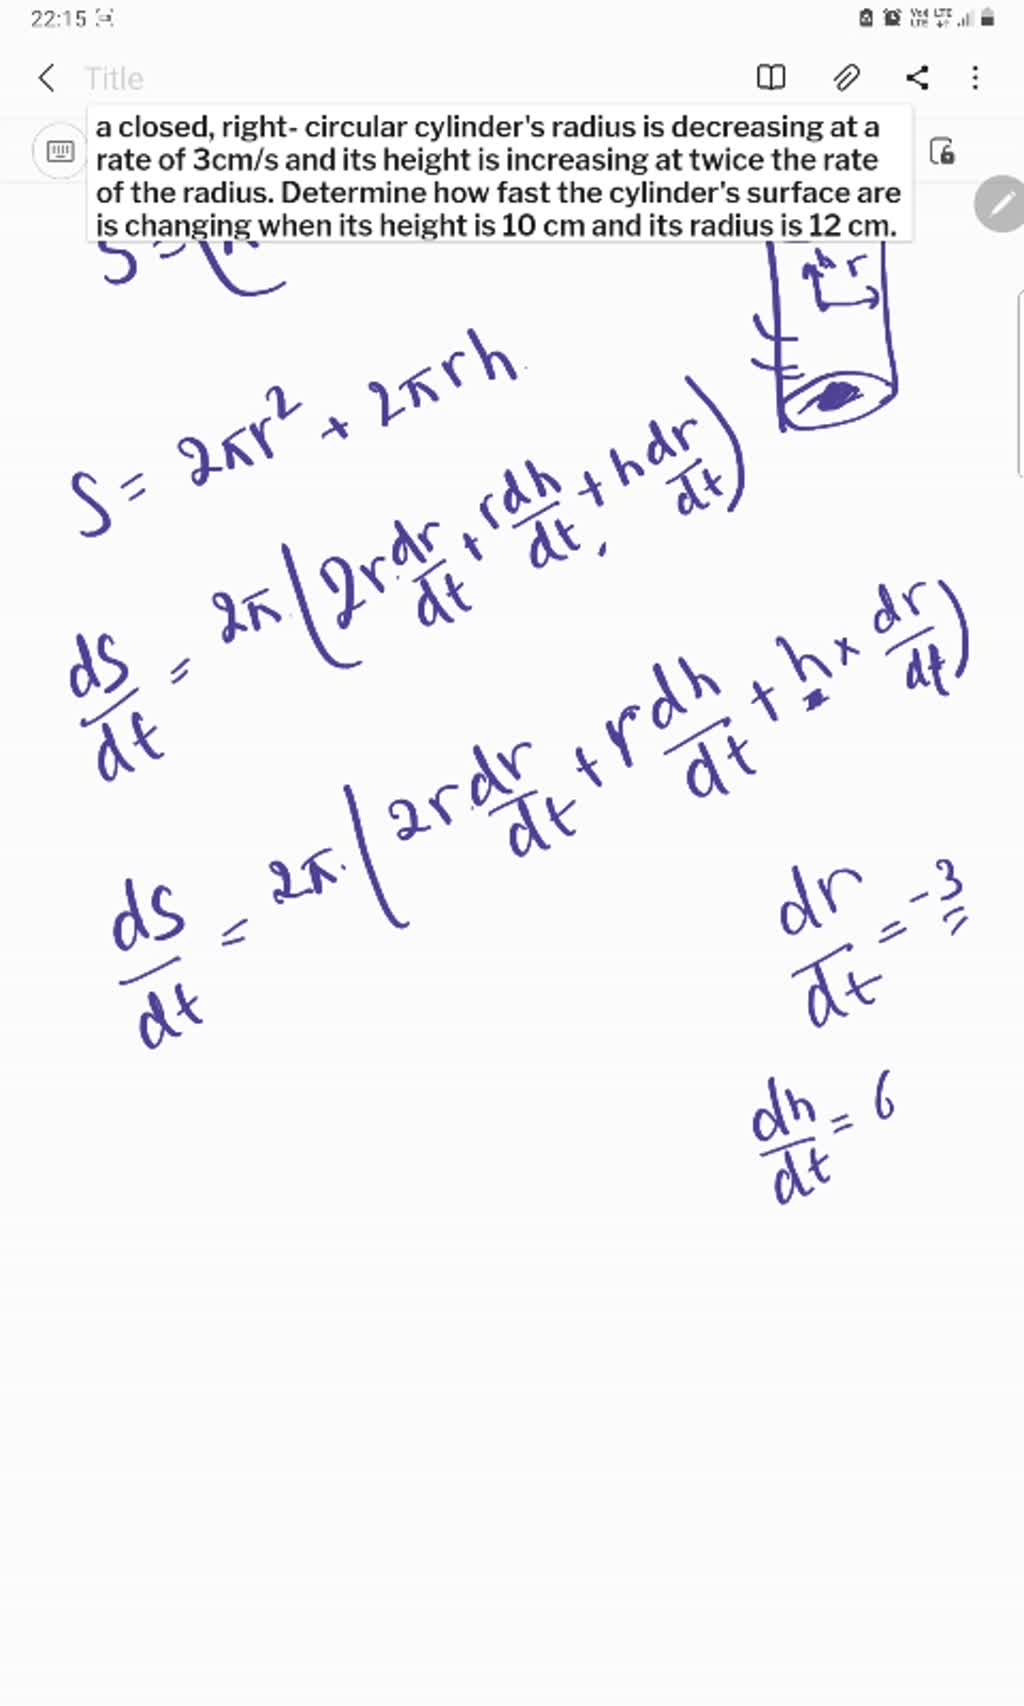 22:15
Title
a closed, right- circular cylinder's radius is decreasing at a
rate of 3cm/s and its height is increasing at twice the rate
of the radius. Determine how fast the cylinder's surface are
is changing when its height is 10 cm and its radius is 12 cm.
S =
r
S = 2πr² + 2πrh
dS/dt = 2π(2r dr/dt + r dh/dt + h dr/dt)
dS/dt = 2π(2r dr/dt + r dh/dt + h × dr/dt)
dr/dt = -3
dh/dt = 6